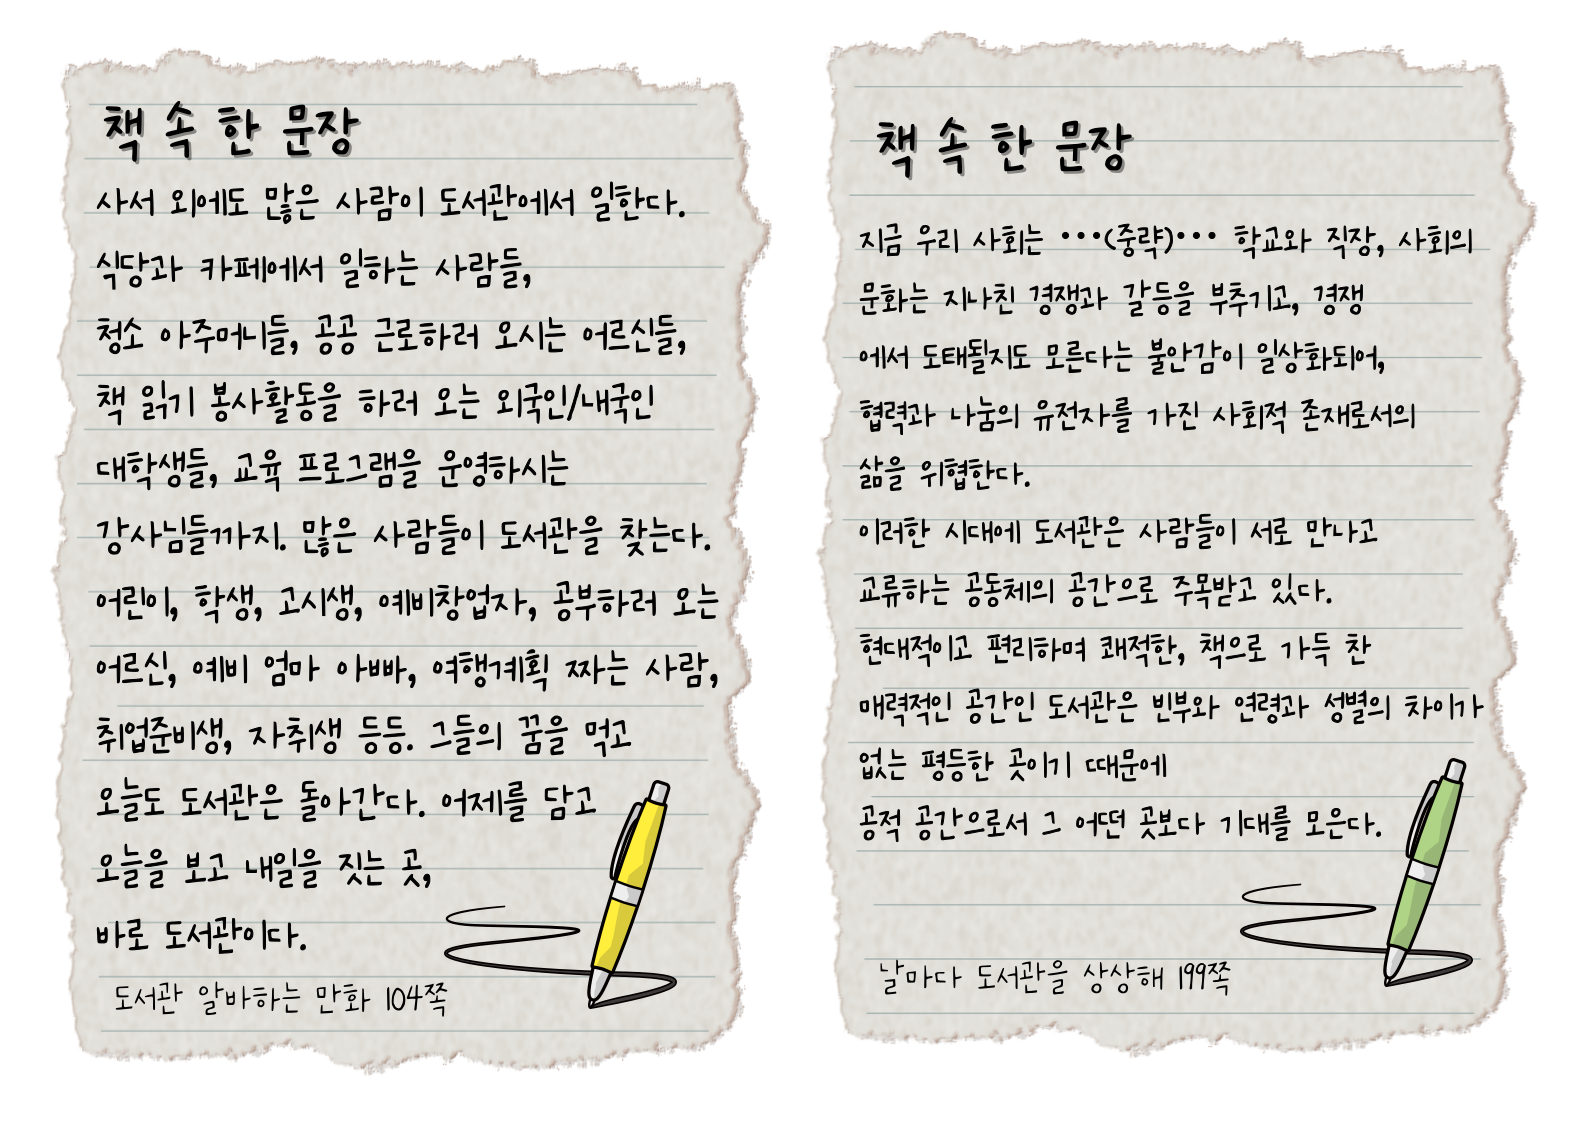 책 속 한 문장
사서 외에도 많은 사람이 도서관에서 일한다.
식당과 카페에서 일하는 사람들,
청소 아주머니들, 공공 근로하러 오시는 어르신들,
책 읽기 봉사활동을 하러 오는 외국인/내국인
대학생들, 교육 프로그램을 운영하시는
강사님들까지. 많은 사람들이 도서관을 찾는다.
어린이, 학생, 고시생, 예비창업자, 공부하러 오는
어르신, 예비 엄마 아빠, 여행계획 짜는 사람,
취업준비생, 자취생 등등. 그들의 꿈을 먹고
오늘도 도서관은 돌아간다. 어제를 담고
오늘을 보고 내일을 짓는 곳,
바로 도서관이다.
도서관 알바하는 만화 104쪽
책 속 한 문장
지금 우리 사회는 •••(중략)••• 학교와 직장, 사회의
문화는 지나친 경쟁과 갈등을 부추기고, 경쟁
에서 도태될지도 모른다는 불안감이 일상화되어,
협력과 나눔의 유전자를 가진 사회적 존재로서의
삶을 위협한다.
이러한 시대에 도서관은 사람들이 서로 만나고
교류하는 공동체의 공간으로 주목받고 있다.
현대적이고 편리하며 쾌적한, 책으로 가득 찬
매력적인 공간인 도서관은 빈부와 연령과 성별의 차이가
없는 평등한 곳이기 때문에
공적 공간으로서 그 어떤 곳보다 기대를 모은다.
날마다 도서관을 상상해 199쪽